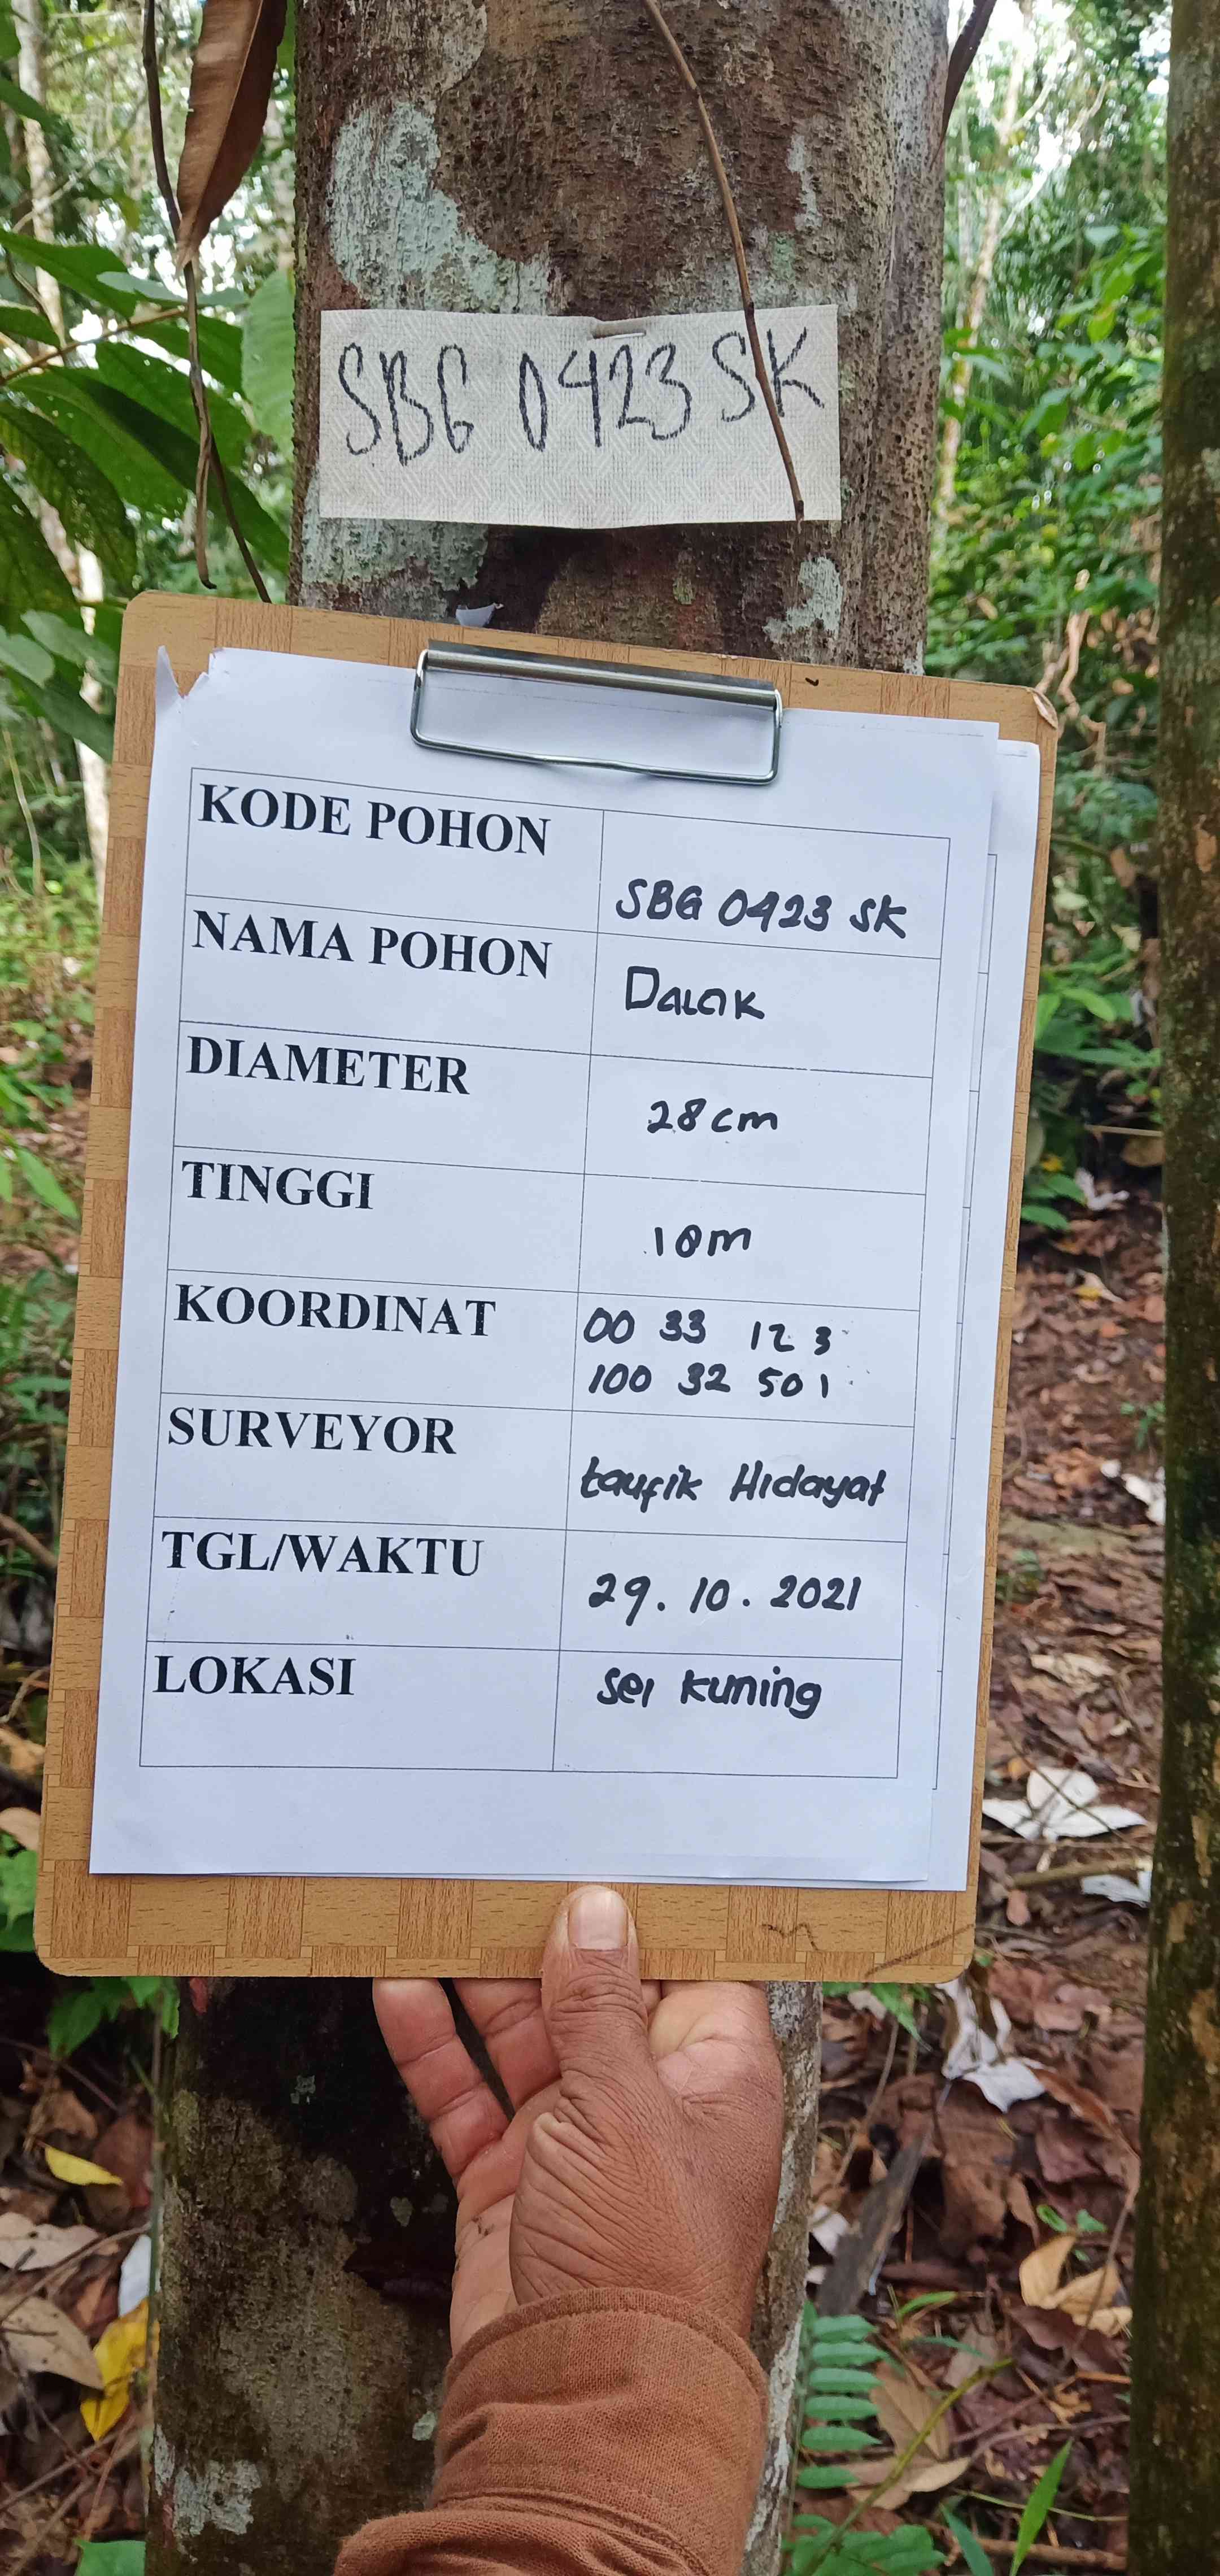 SBG 0423 SK
KODE POHON
SBG 0423 SK
NAMA POHON
Dalak
DIAMETER
28 cm
TINGGI
10 m
KOORDINAT
00 33 12 3
100 32 50 1
SURVEYOR
taufik Hidayat
TGL/WAKTU
29. 10. 2021
LOKASI
sei kuning